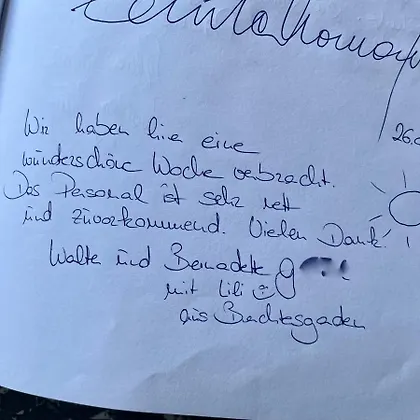 26.
Wir haben hier eine
wunderschöne Woche verbracht.
Das Personal ist sehr nett
und zuvorkommend. Vielen Dank!
Walte und Bernadette
mit Lili
aus Berchtesgaden